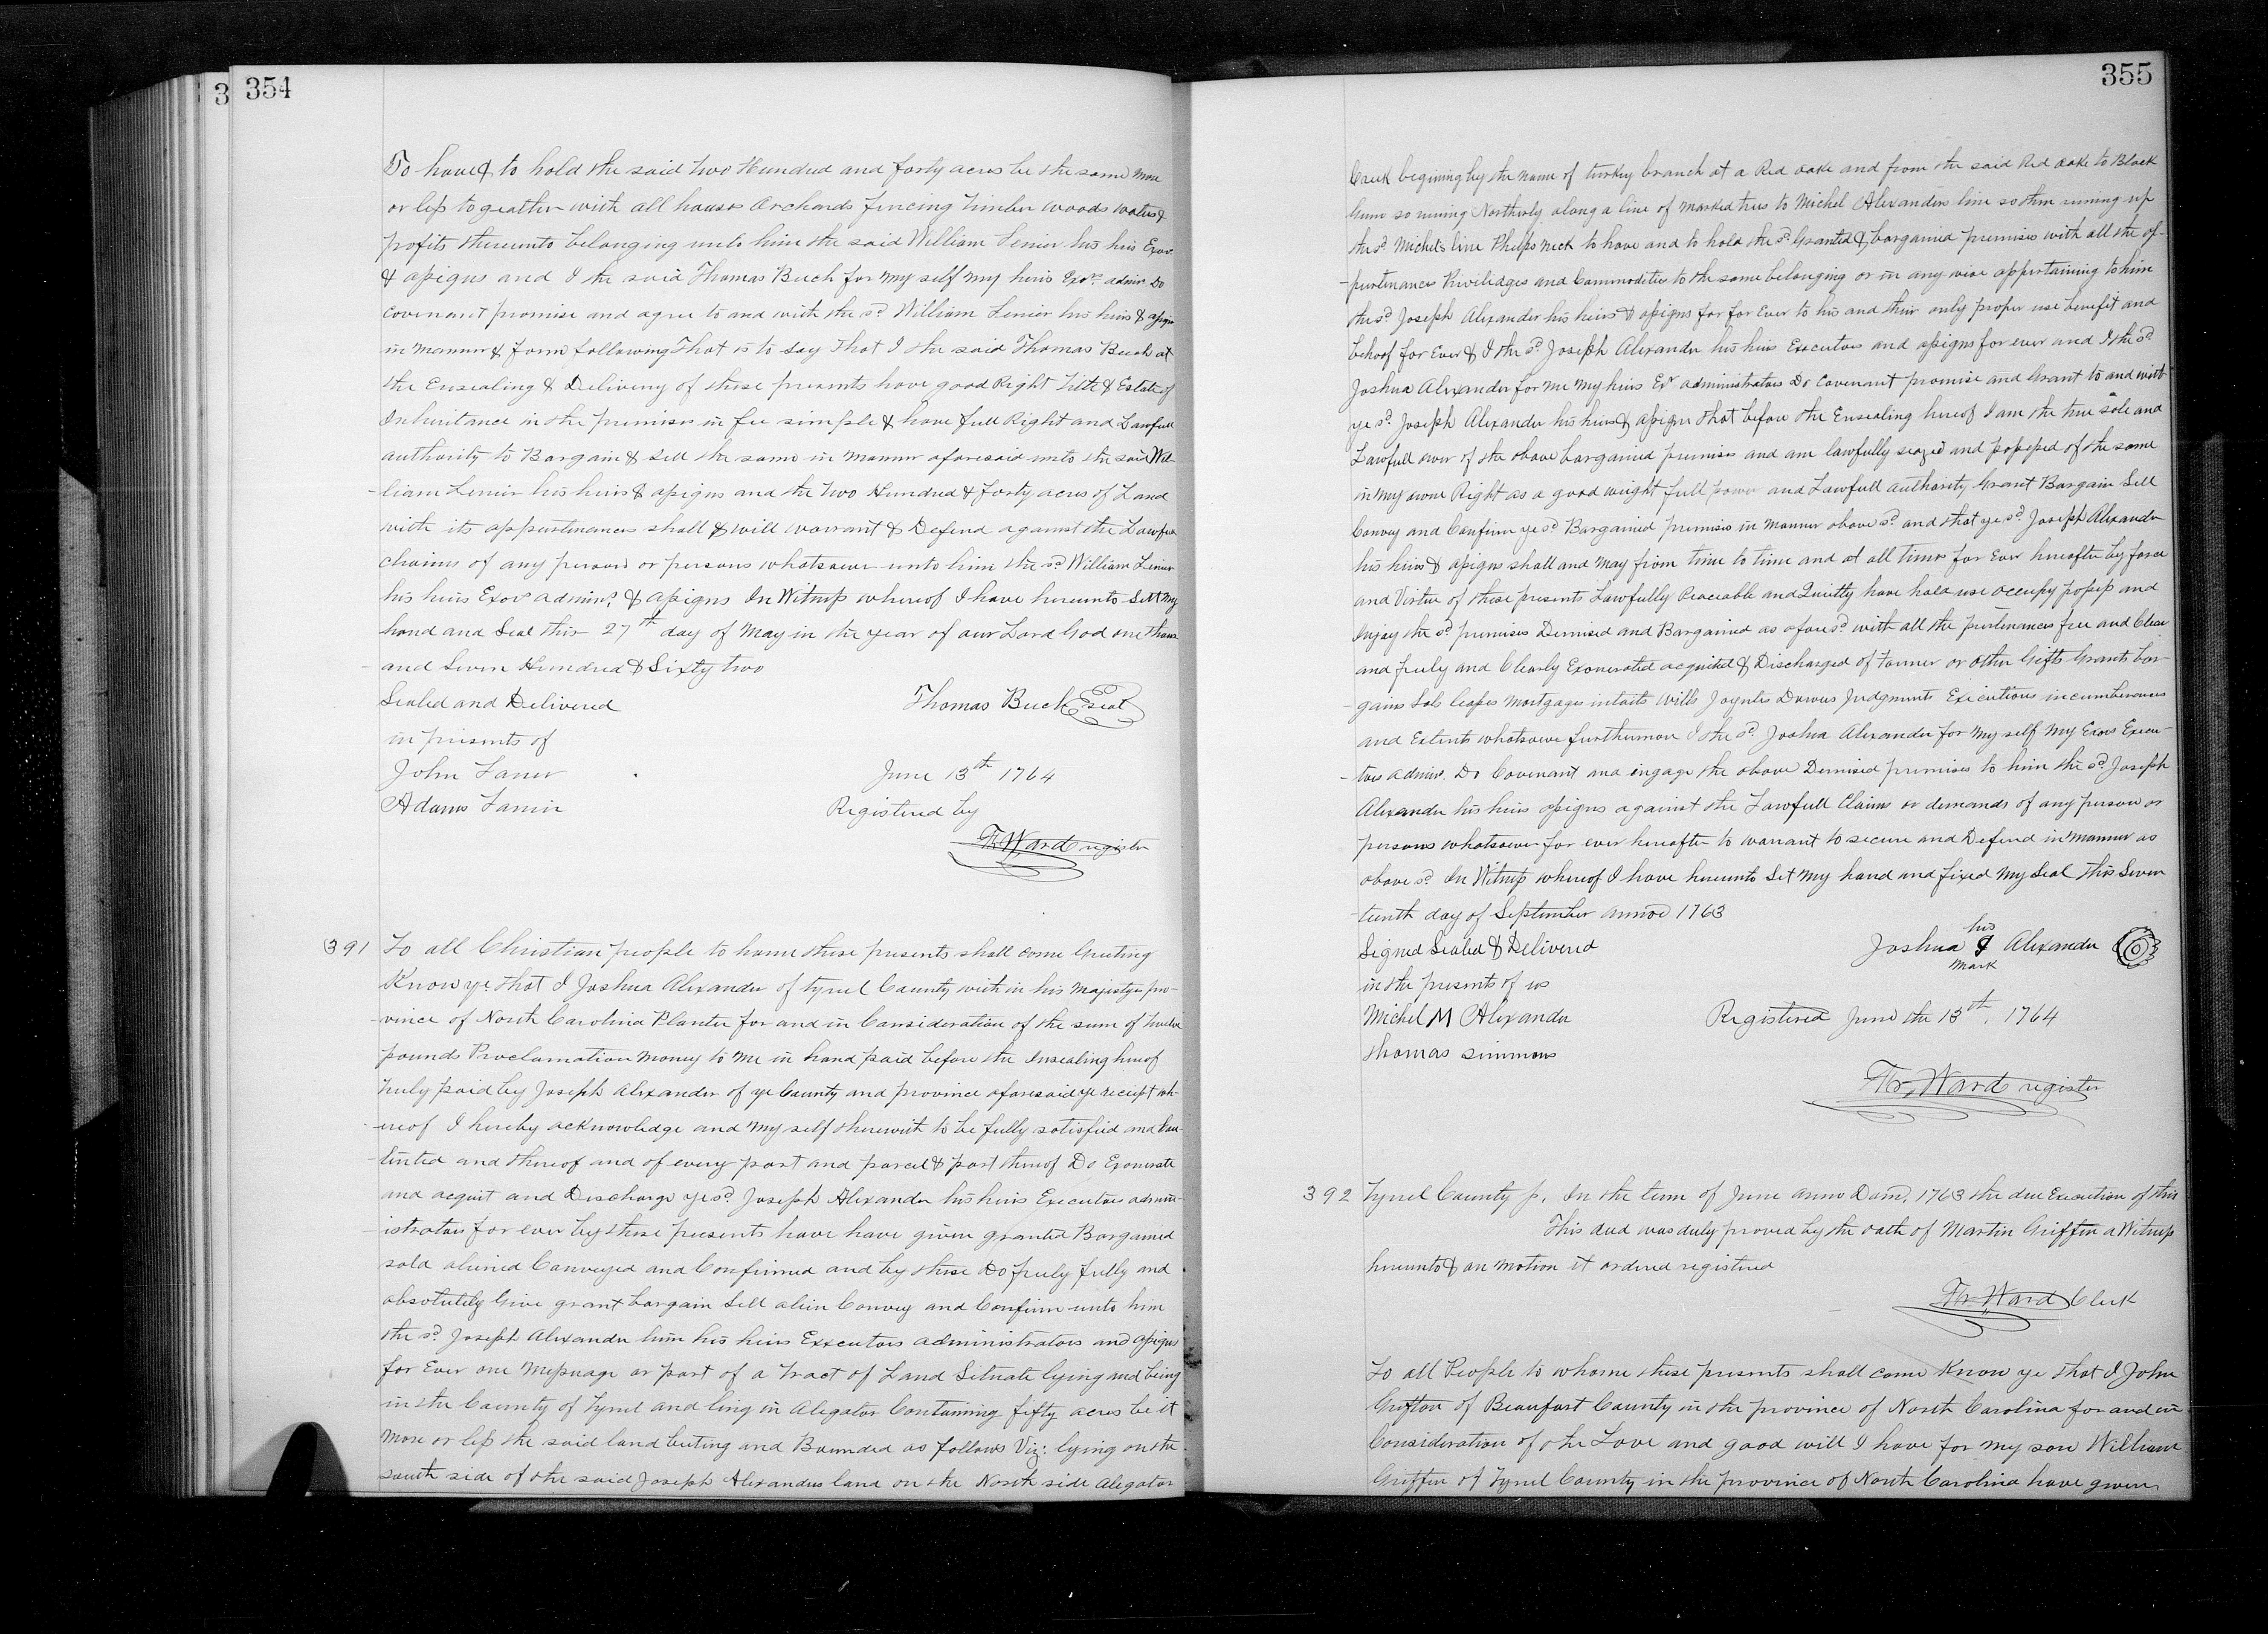 3
354
To have & to hold the said two Hundred and forty acres be the same more
or less to geather with all houses Archards fencing timber woods waters &
profits thereunto belonging unto him the said William Lenier his heirs Exor
& assigns and I the said Thomas Buck for my self my heirs Exrs. admin Do
Covenant promise and agree to and with the sd. William Lenier his heirs & assigns
in manner & form following That is to say That I the said Thomas Buck at
the Ensealing & Delivery of these presents have good Right Title & Estate of
Inheritance in the premises in fee simple & have full Right and Lawfull
authority to Bargain & sell the same in manner aforesaid unto the said Wil-
-liam Lenier his heirs & assigns and the two Hundred & forty acres of Land
with its appurtinances shall & will warrant & Defend against the Lawfull
claims of any person or persons whatsoever unto him the sd. William Lenier
his heirs Exors admins. & assigns In Witness whereof I have hereunto Sett my
hand and Seal this 27th day of May in the year of our Lord God one thous
-and Seven Hundred & Sixty two
Sealed and Delivered Thomas Buck Seal
in presents of
John Laner June 13th 1764
Adams Lanier Registered by
Fr. Ward register
391 To all Christian people to home these presents shall come Greeting
Know ye that I Joshua Alexander of tyrrel County with in his Majestys pro-
-vince of North Carolina Planter for and in Consideration of the sum of twelve
pounds Proclamation money to me in hand paid before the Insealing hereof
truly paid by Joseph Alexander of ye County and province aforesaid ye reciept wh-
-ereof I hereby acknowledge and my self therewith to be fully satisfied and Con-
-tinted and thereof and of every part and parcel & part thereof Do Exonerate
and acquit and Discharge ye sd. Joseph Alexander his heirs Executors admin-
-istrators for ever by these presents have have given granted Bargained
sold aliened Conveyed and Confirmed and by these Do freely fully and
absolutely Give grant bargain Sell alien Convey and Confirm unto him
the sd. Joseph Alexander him his heirs Exxcutors administrators and assigns
for Ever one Messuage or part of a tract of Land Situate lying and being
in the County of Tyrrel and ling in Aligator Containing fifty acres be it
more or less the said land buting and Bounded as follows Viz: lying on the
south side of the said Joseph Alexanders land on the North side Aligator
355
Creek begining by the name of turkey branch at a Red oake and from the said Red oake to Black
Gum so runing Northerly along a line of marked trees to Michel Alexanders line so then runing up
the sd. Michels line Phelps neck to have and to hold the sd. Granted & bargained premises with all the ap-
-purtinances Priviledges and Commodities to the same belonging or in any wise appertaining to him
the sd. Joseph Alexander his heirs & assigns for for Ever to his and their only proper use benefit and
behoof for Ever & I the sd. Joseph Alexander his heirs Executors and assigns for ever and I the sd.
Joshua Alexander for me my heirs Exr administrators Do Covenant promise and Grant to and with
ye sd. Joseph Alexander his heirs & assigns that before the Ensealing hereof I am the true sole and
Lawfull owner of the above bargained premises and am lawfully seazed and possessed of the same
in my owne Right as a good wright full power and Lawfull authority Grant Bargain Sell
Convey and Confirm ye sd. Bargained premises in manner above sd. and that ye sd. Joseph Alexander
his heirs & assigns shall and may from time to time and at all times for Ever hereafter by force
and Virtue of these presents Lawfully Peaceable and Quietly have hold use occupy possess and
Injoy the sd. premises Demised and Bargained as afore sd. with all the purtinances free and Clear
and freely and Clearly Exonerated acquited & Discharged of former or other Gifts Grants bar-
-gains Sals leases mortgages intails wills Joyntes Dowers Judgments Executions incumberances
and Extents whatsoever furthermore I the sd. Joshua Alexander for my self my Exors Execu-
-tors admins. Do Covenant and ingage the above Demised premises to him the sd. Joseph
Alexander his heirs assigns against the Lawfull Claims or demands of any person or
persons whatsoever for ever hereafter to warrant to secure and Defend in manner as
above sd. In Witness whereof I have hereunto Set my hand and fixed my Seal this Seven
-tenth day of September annod 1763
Signed Sealed & Delivered Joshua his J mark Alexander
in the presents of us
Michel M Alexander Registered June the 13th. 1764
thomas simmons
Fr. Ward register
392 Tyrrel County ss. In the term of June anno Dom. 1763 the due Execution of this
This deed was duly proved by the oath of Martin Griffin a Witness
hereunto & on motion it ordered registered
Fr. Ward Clerk
To all People to whome these presents shall come Know ye that I John
Griffton of Beaufort County in the province of North Carolina for and in
Consideration of the Love and good will I have for my son William
Griffin of Tyrrel County in the province of North Carolina have given